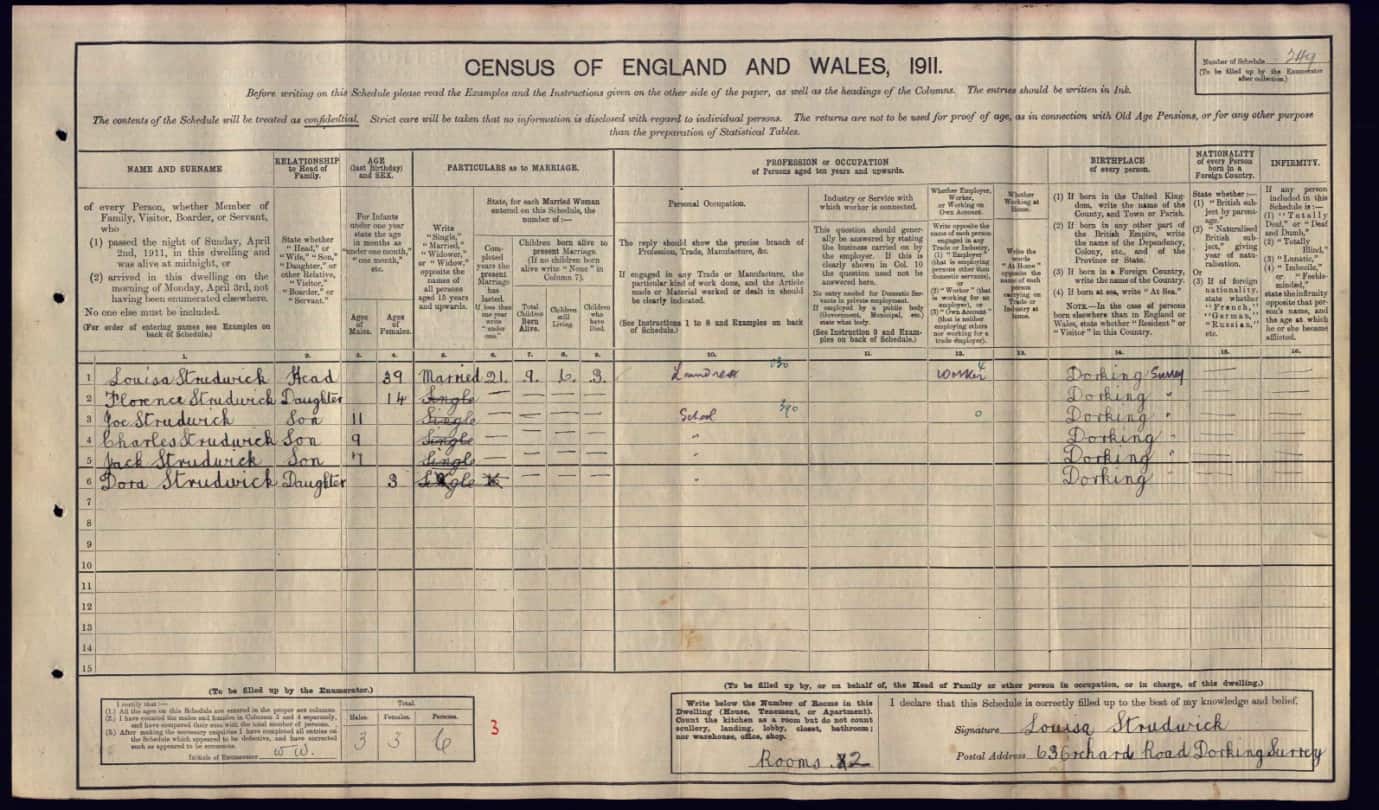 CENSUS OF ENGLAND AND WALES, 1911.
Number of Schedule 249
(To be filled up by the Enumerator
after collection.)
Before writing on this Schedule please read the Examples and the Instructions given on the other side of the paper, as well as the headings of the Columns. The entries should be written in Ink.
The contents of the Schedule will be treated as confidential. Strict care will be taken that no information is disclosed with regard to individual persons. The returns are not to be used for proof of age, as in connection with Old Age Pensions, or for any other purpose
than the preparation of Statistical Tables.
NAME AND SURNAME
RELATIONSHIP
to Head of
Family.
AGE
(last birthday)
and SEX.
PARTICULARS as to MARRIAGE.
PROFESSION or OCCUPATION
of Persons aged ten years and upwards.
BIRTHPLACE
of every person.
NATIONALITY
of every Person
born in a
Foreign Country.
INFIRMITY.
of every Person, whether Member of
Family, Visitor, Boarder, or Servant,
who
(1) passed the night of Sunday, April
2nd, 1911, in this dwelling and
was alive at midnight, or
(2) arrived in this dwelling on the
morning of Monday, April 3rd, not
having been enumerated elsewhere.
No one else must be included.
(For order of entering names see Examples on
back of Schedule.)
State whether
"Head," or
"Wife," "Son,"
"Daughter," or
other Relative,
"Visitor,"
"Boarder," or
"Servant."
For Infants
under one year
state the age
in months as
"under one month,"
"one month,"
etc.
Ages
of
Males.
Ages
of
Females.
Write
"Single,"
"Married,"
"Widower,"
or "Widow,"
opposite the
names of
all persons
aged 15 years
and upwards.
State, for each Married Woman
entered on this Schedule, the
number of:—
Completed
years the
present
Marriage
has
lasted.
If less than
one year
write
"under
one."
Children born alive to
present Marriage.
(If no children born
alive write "None" in
Column 7).
Total
Children
Born
Alive.
Children
still
Living.
Children
who
have
Died.
Personal Occupation.
The reply should show the precise branch of
Profession, Trade, Manufacture, &c.
If engaged in any Trade or Manufacture, the
particular kind of work done, and the Article
made or Material worked or dealt in should
be clearly indicated.
(See Instructions 1 to 8 and Examples on back
of Schedule.)
Industry or Service with
which worker is connected.
This question should generally
be answered by stating
the business carried on by
the employer. If this is
clearly shown in Col. 10
the question need not be
answered here.
No entry needed for Domestic Servants
in private employment.
If employed by a public body
(Government, Municipal, etc.)
state what body.
(See Instruction 9 and Examples
on back of Schedule.)
Whether Employer,
Worker,
or Working on
Own Account.
Write opposite the
name of each person
engaged in any
Trade or Industry,
(1) "Employer"
(that is employing
persons other than
domestic servants),
or
(2) "Worker" (that
is working for an
employer), or
(3) "Own Account"
(that is neither
employing others
nor working for a
trade employer).
Whether
Working at
Home.
Write the
words
"At Home"
opposite the
name of each
person
carrying on
Trade or
Industry at
home.
(1) If born in the United Kingdom,
write the name of the
County, and Town or Parish.
(2) If born in any other part of
the British Empire, write
the name of the Dependency,
Colony, etc., and of the
Province or State.
(3) If born in a Foreign Country,
write the name of the Country.
(4) If born at sea, write "At Sea."
NOTE.—In the case of persons
born elsewhere than in England or
Wales, state whether "Resident" or
"Visitor" in this Country.
State whether:—
(1) "British subject
by parentage."
(2) "Naturalised
British subject,"
giving
year of naturalisation.
Or
(3) If of foreign
nationality,
state whether
"French,"
"German,"
"Russian,"
etc.
If any person
included in this
Schedule is:—
(1) "Totally
Deaf," or "Deaf
and Dumb,"
(2) "Totally
Blind,"
(3) "Lunatic,"
(4) "Imbecile,"
or "Feeble-
minded,"
state the infirmity
opposite that person's
name, and
the age at which
he or she became
afflicted.
1. 2. 3. 4. 5. 6. 7. 8. 9. 10. 11. 12. 13. 14. 15. 16.
1 Louisa Strudwick Head 39 Married 21. 9. 6. 3. Laundress 030 worker 4 Dorking Surrey
2 Florence Strudwick Daughter 14 Single Dorking "
3 Joe Strudwick Son 11 Single School 390 0 Dorking "
4 Charles Strudwick Son 9 Single " Dorking "
5 Jack Strudwick Son 7 Single " Dorking "
6 Dora Strudwick Daughter 3 Single " Dorking
7
8
9
10
11
12
13
14
15
(To be filled up by the Enumerator.)
I certify that:—
(1.) All the ages on this Schedule are entered in the proper sex columns.
(2.) I have counted the males and females in Columns 3 and 4 separately,
and have compared their sum with the total number of persons.
(3.) After making the necessary enquiries I have completed all entries on
the Schedule which appeared to be defective, and have corrected
such as appeared to be erroneous.
Initials of Enumerator W W.
Total.
Males. Females. Persons.
3 3 6
3
(To be filled up by, or on behalf of, the Head of Family or other person in occupation, or in charge, of this dwelling.)
Write below the Number of Rooms in this
Dwelling (House, Tenement, or Apartment).
Count the kitchen as a room but do not count
scullery, landing, lobby, closet, bathroom;
nor warehouse, office, shop.
Rooms 2
I declare that this Schedule is correctly filled up to the best of my knowledge and belief.
Signature Louisa Strudwick
Postal Address 63 Orchard Road Dorking Surrey